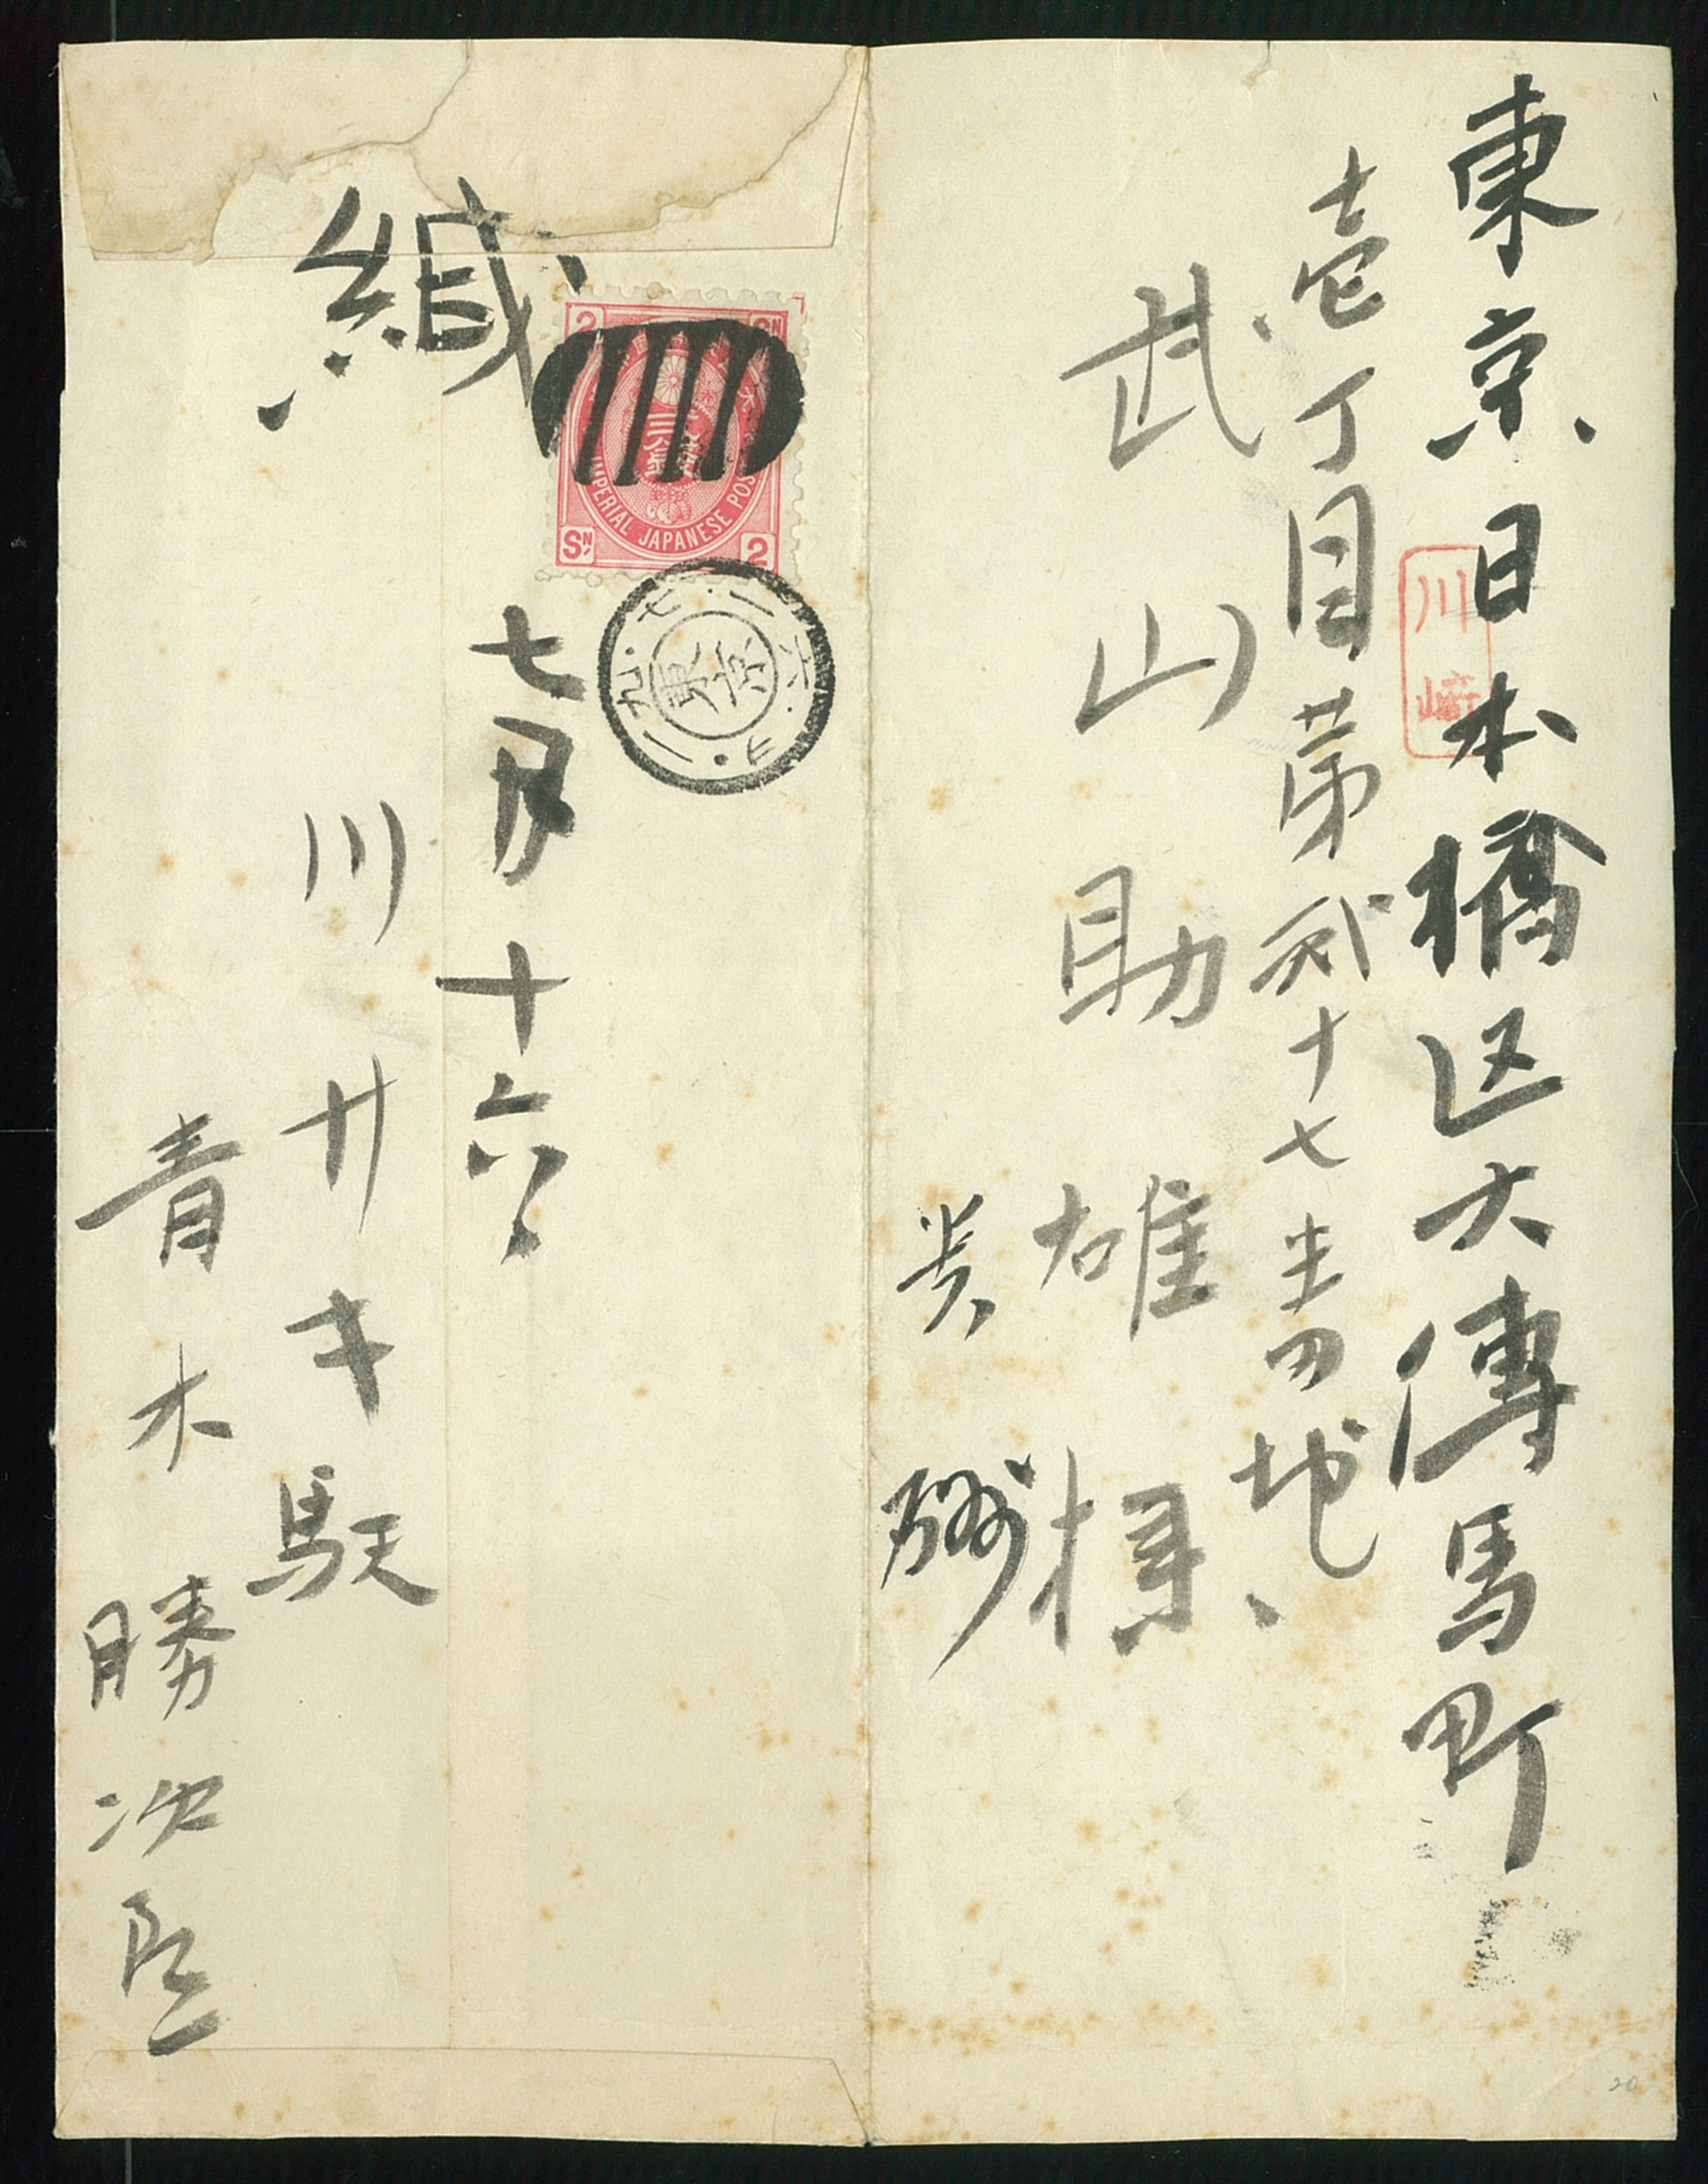 東京日本橋区大傳馬町
壱丁目第弐十七番地
武山助雄様
貴
川崎
緘
2 SN
二銭
IMPERIAL JAPANESE POS
SN 2
東京
七月十六日
川サキ駅
青木勝次郎